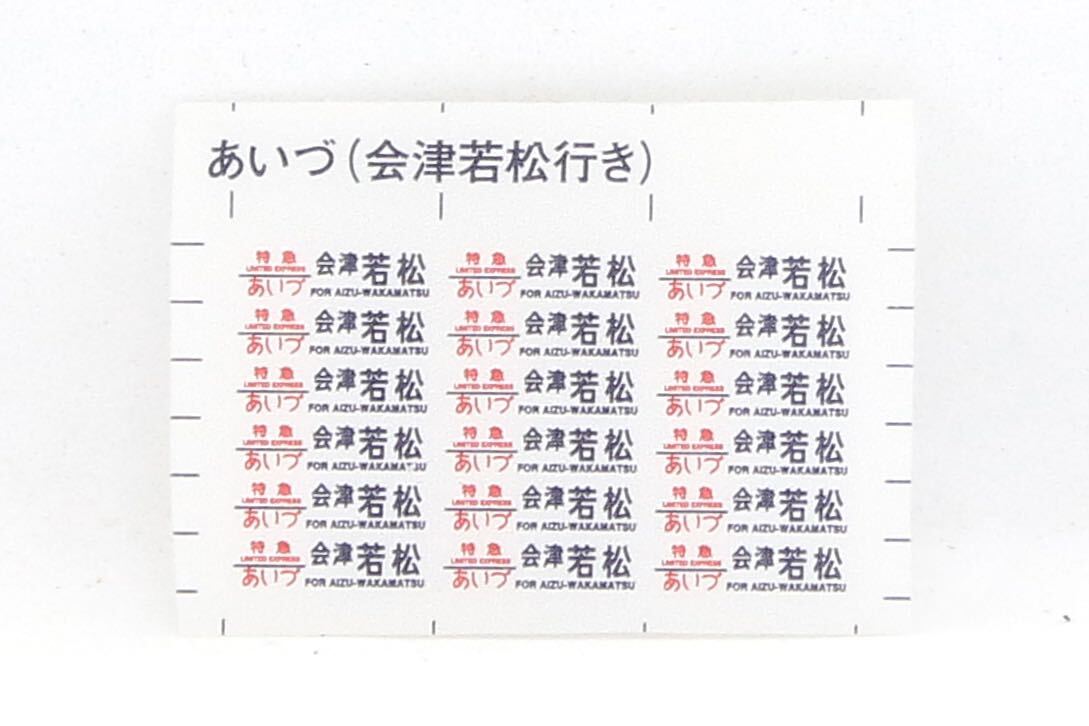 あいづ(会津若松行き)
特急 会津若松 特急 会津若松 特急 会津若松
LIMITED EXPRESS LIMITED EXPRESS LIMITED EXPRESS
あいづ FOR AIZU-WAKAMATSU あいづ FOR AIZU-WAKAMATSU あいづ FOR AIZU-WAKAMATSU
特急 会津若松 特急 会津若松 特急 会津若松
LIMITED EXPRESS LIMITED EXPRESS LIMITED EXPRESS
あいづ FOR AIZU-WAKAMATSU あいづ FOR AIZU-WAKAMATSU あいづ FOR AIZU-WAKAMATSU
特急 会津若松 特急 会津若松 特急 会津若松
LIMITED EXPRESS LIMITED EXPRESS LIMITED EXPRESS
あいづ FOR AIZU-WAKAMATSU あいづ FOR AIZU-WAKAMATSU あいづ FOR AIZU-WAKAMATSU
特急 会津若松 特急 会津若松 特急 会津若松
LIMITED EXPRESS LIMITED EXPRESS LIMITED EXPRESS
あいづ FOR AIZU-WAKAMATSU あいづ FOR AIZU-WAKAMATSU あいづ FOR AIZU-WAKAMATSU
特急 会津若松 特急 会津若松 特急 会津若松
LIMITED EXPRESS LIMITED EXPRESS LIMITED EXPRESS
あいづ FOR AIZU-WAKAMATSU あいづ FOR AIZU-WAKAMATSU あいづ FOR AIZU-WAKAMATSU
特急 会津若松 特急 会津若松 特急 会津若松
LIMITED EXPRESS LIMITED EXPRESS LIMITED EXPRESS
あいづ FOR AIZU-WAKAMATSU あいづ FOR AIZU-WAKAMATSU あいづ FOR AIZU-WAKAMATSU